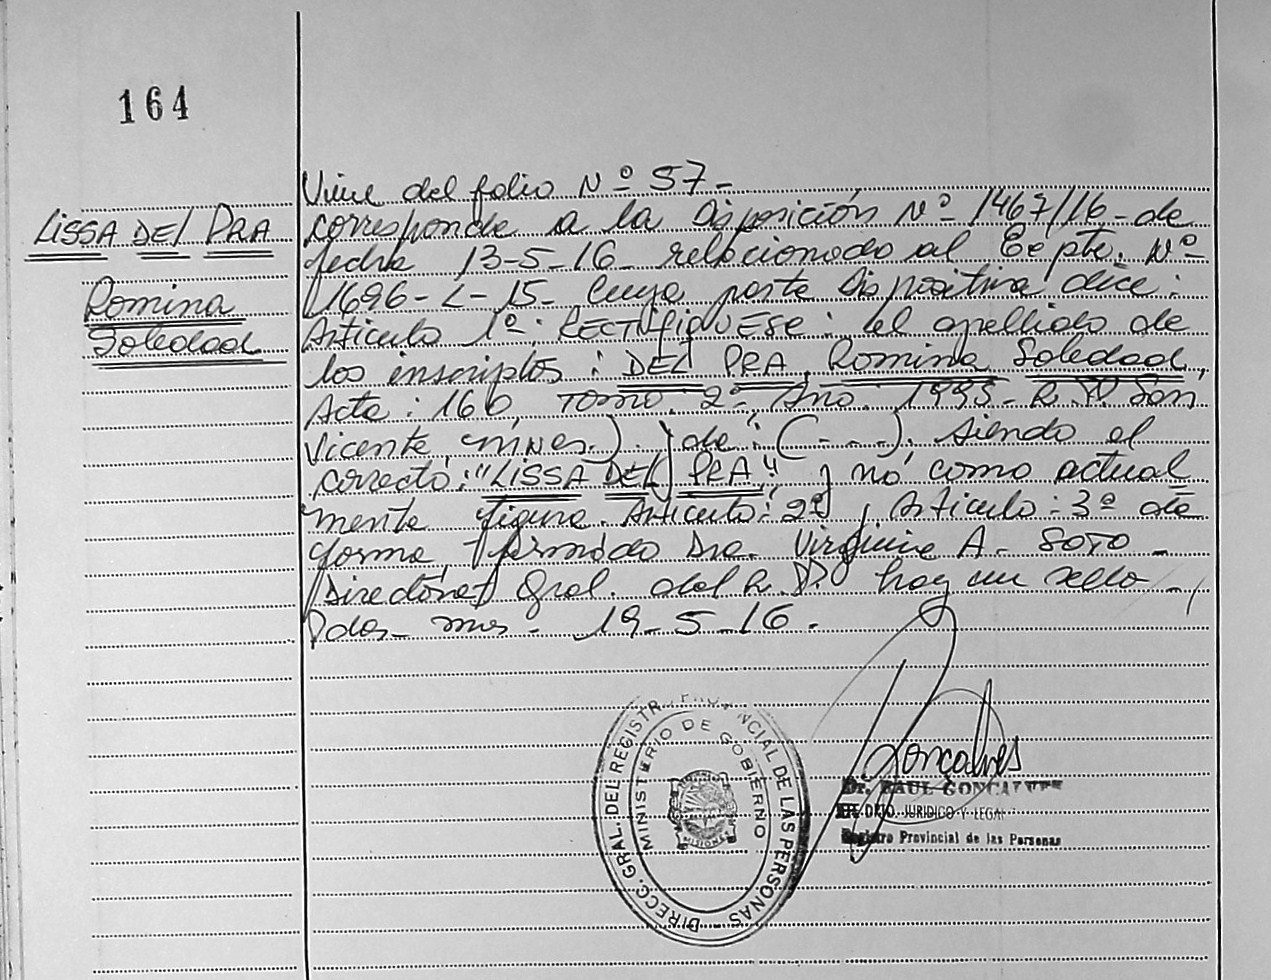 164
LISSA DEL PRA
Romina
Soledad
Viene del folio Nº 57-
corresponde a la Disposición Nº 1467/16- de
fecha 13-5-16- relacionado al Expte. Nº
1696-L-15- Cuya parte Dispositiva dice:
Artículo 1º: RECTIFIQUESE: el apellido de
los inscriptos: DEL PRA, Romina Soledad,
Acta: 160, Tomo. 2º, Año. 1993- R.P. San
Vicente, Mnes.) y de: (- - -), siendo el
correcto: "LISSA DEL PRA" y no como actual
mente figura. Artículo: 2º y Artículo: 3º de
forma, firmado Dra. A- SOTO-
Directora Gral. del R.P. hay un sello-
Pdas- mnes- 19-5-16.
DIRECC. GRAL. DEL REGISTR PROVINCIAL DE LAS PERSONAS
MINISTERIO DE GOBIERNO
MISIONES
Goncalves
Dr. RAUL GONCALVES
DPTO. JURIDICO Y LEGAL
Registro Provincial de las Personas